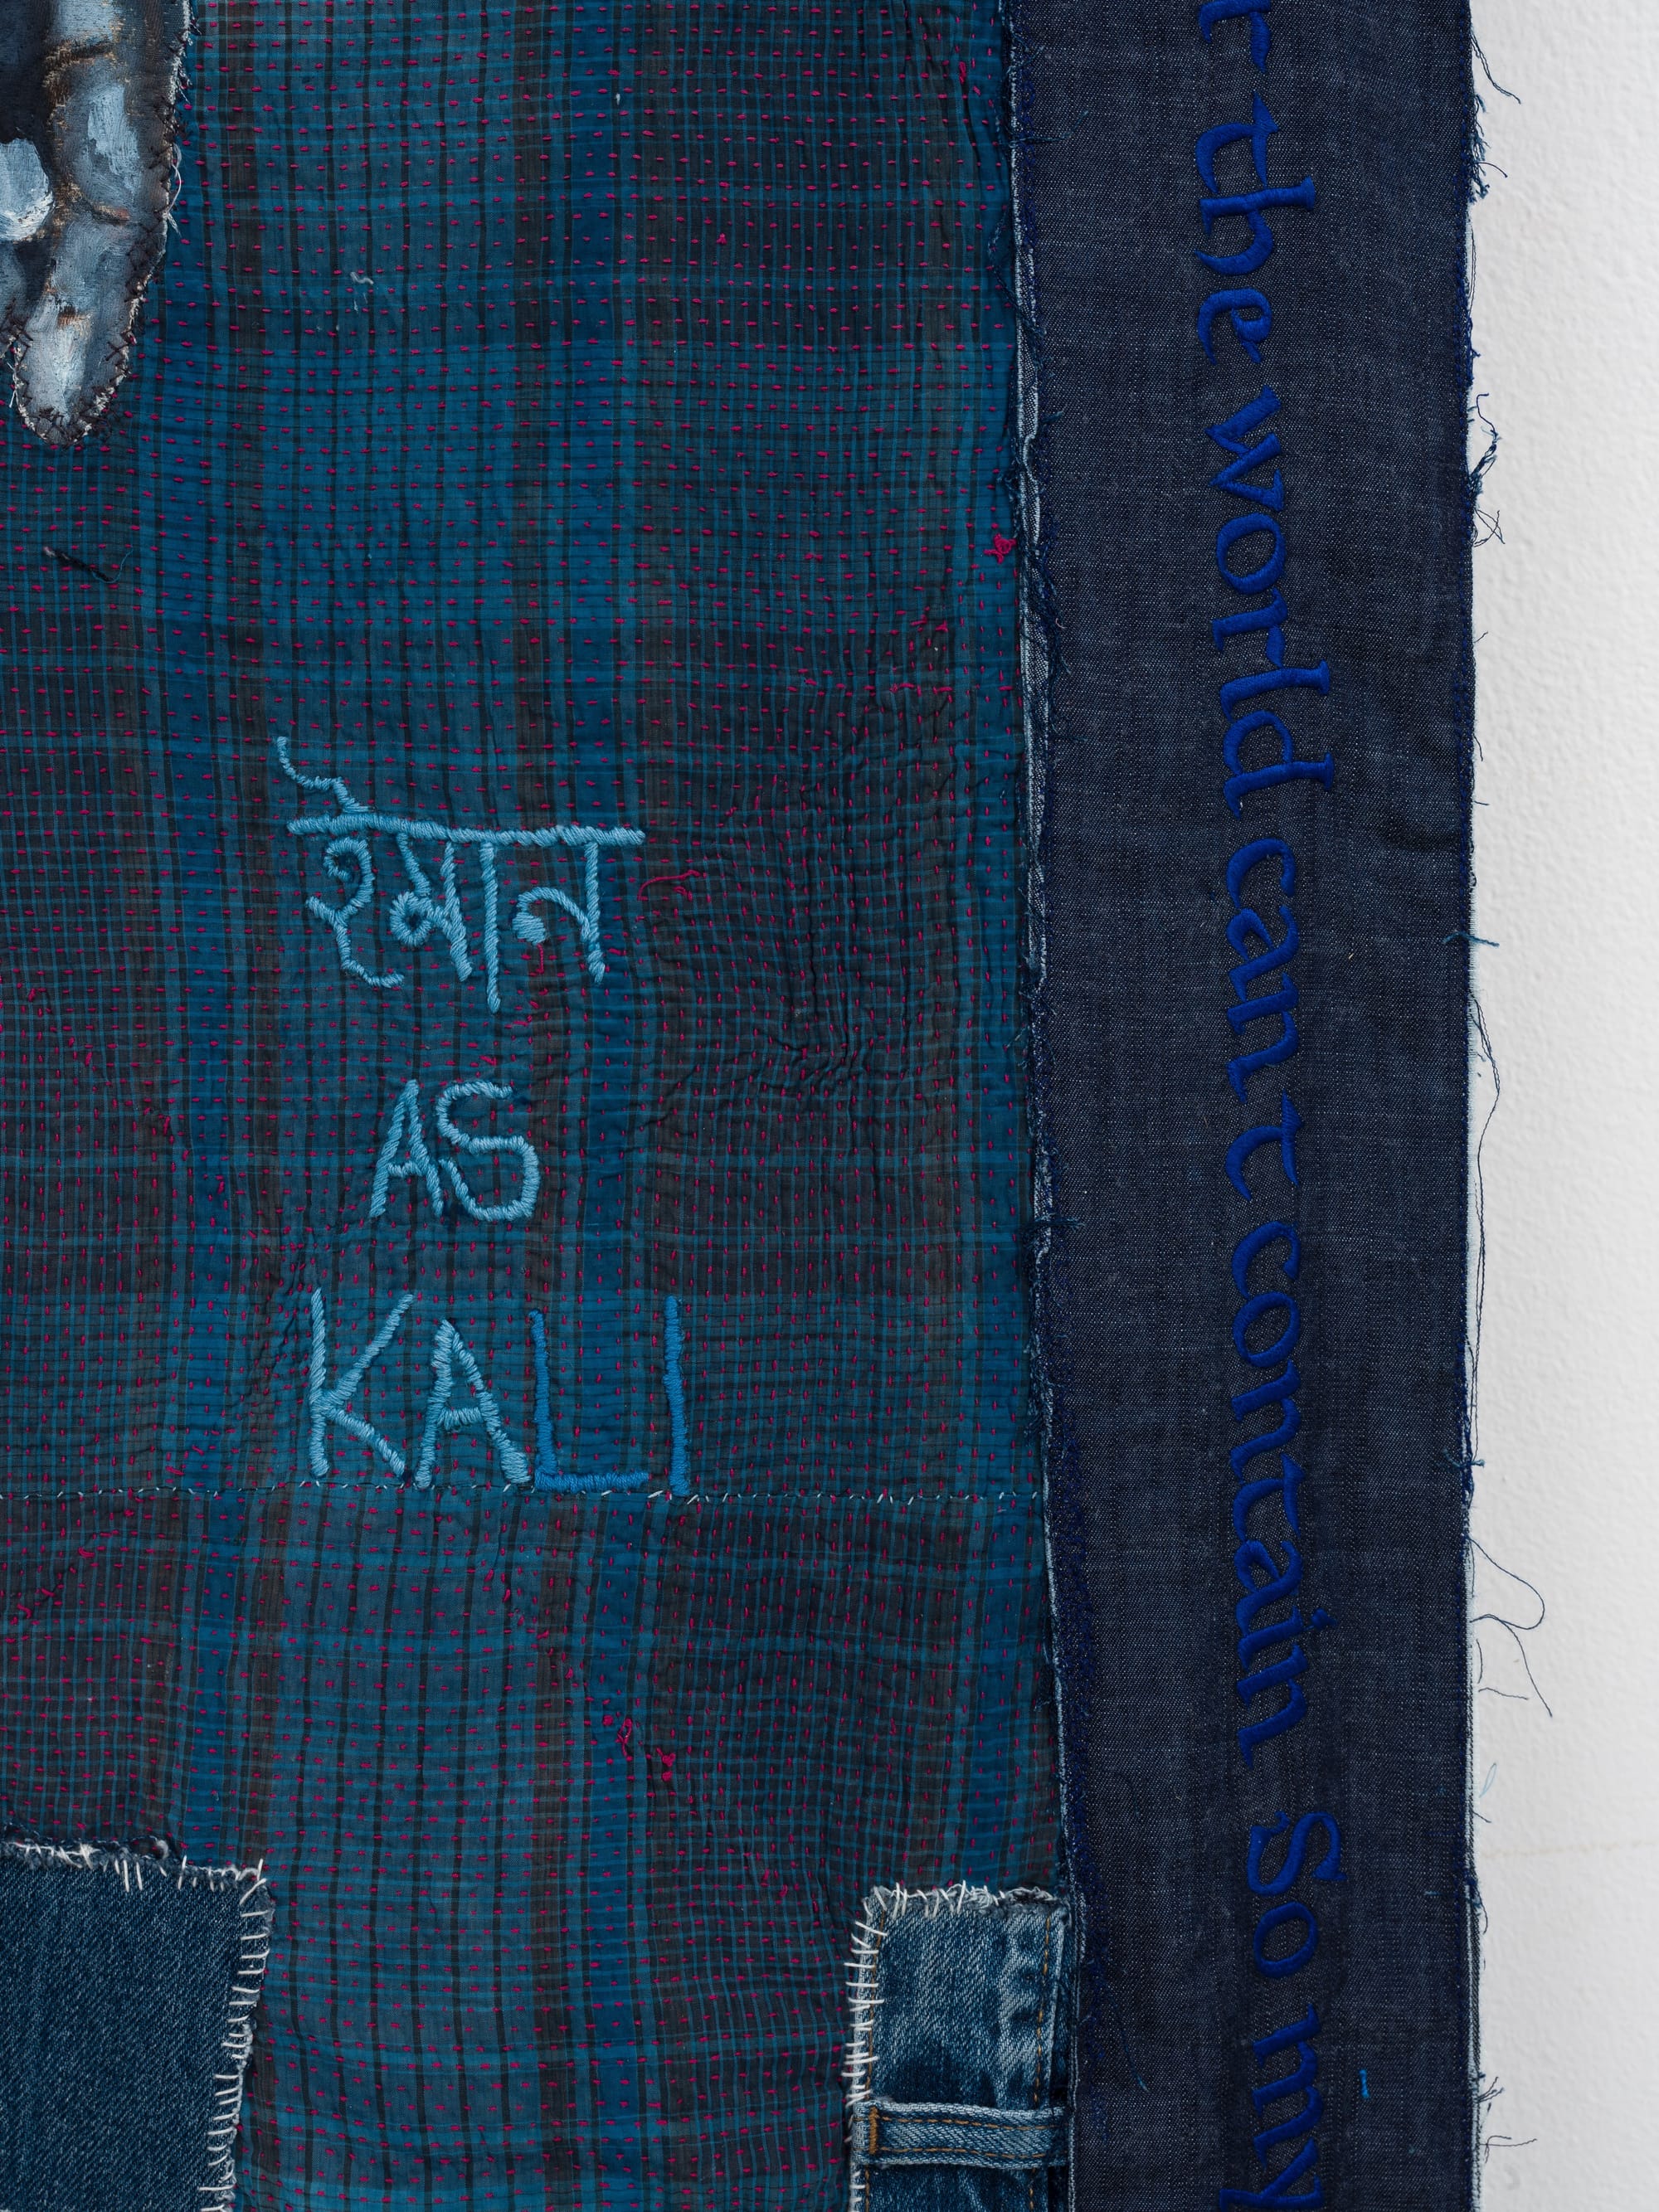 रेमान
AS
KALI
the world can't contain So my